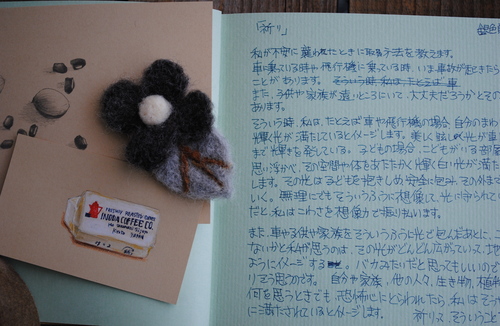 「祈り」
私が不安に襲われたときに取る手法を教えます。
車に乗っている時や飛行機に乗っている時、いま事故が起きたら
ことがあります。そういう時私は、たとえば車
また、子供や家族が遠いところにいて、大丈夫だろうかとその
あります。
そういう時、私は、たとえば車や飛行機の場合、自分のまわ
輝く光が満ちているとイメージします。美しく眩しく光が車
まで輝きを発している。子どもの場合、こどもがいる部屋
思い浮かべ、その空間や体をあたたかく輝く白い光が満た
します。その光は子どもを抱きしめ安全に包み、その外ま
いく。無理にでもそういうふうに想像して、光に守られてい
だと、私はこわさを想像力で振り払います。
また、車や子供や家族をそういうふうに光で包んだあとに、こ
ないかと私が思うのは、その光がどんどん広がっていって、地
ようにイメージする。バカみたいだと思ってもいいので
りそう思うのです。自分や家族、他の人々、生き物、植物
何を思うときでも、恐怖心にとらわれたら、私はそう
に満たされているほうとイメージします。
祈りって、そういうこと
銀色
FRESHLY ROASTED COFFEE
INODA COFFEE CO.
KYOTO JAPAN